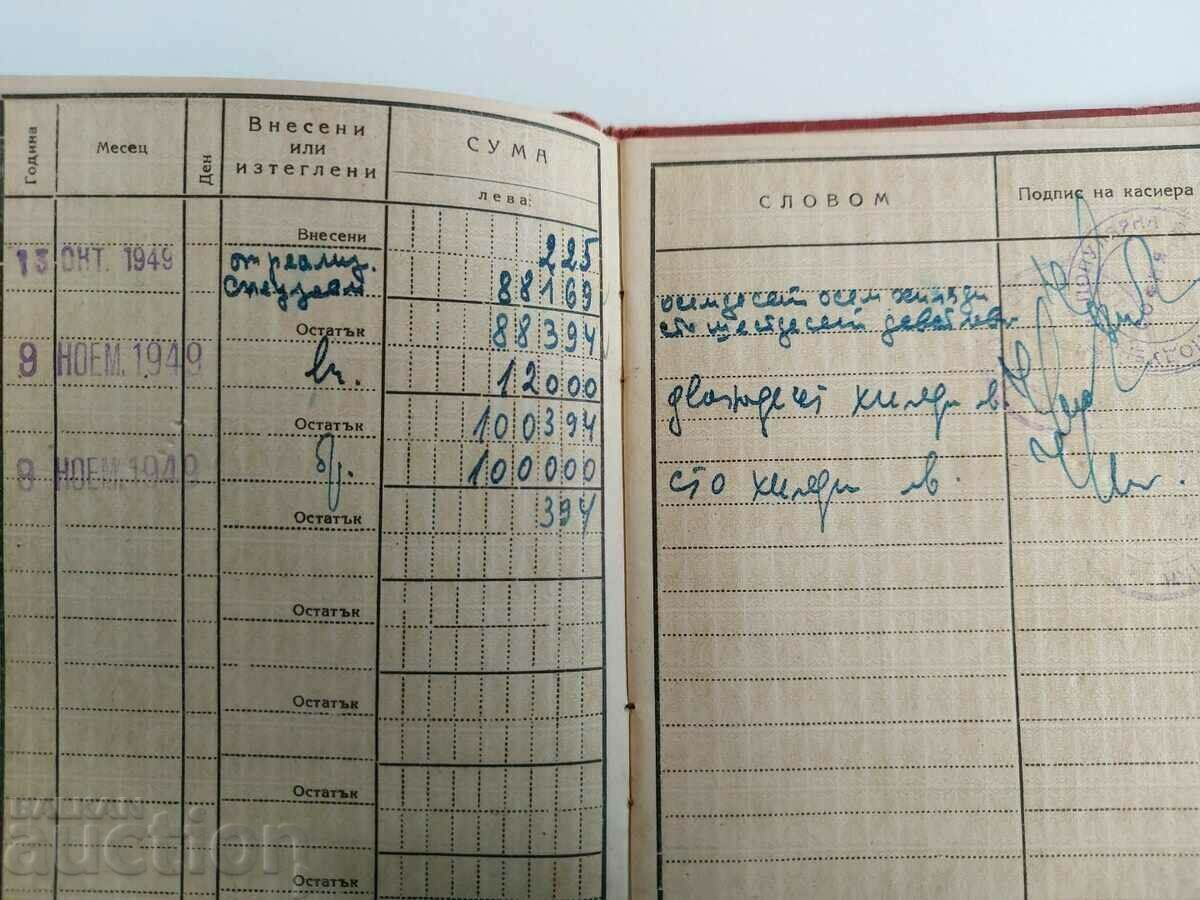 Година
Месец
Ден
Внесени
или
изтеглени
СУМА
лева:
СЛОВОМ
Подпис на касиера
Внесени 225
13 ОКТ. 1949 от реализ.
88169
осемдесет осем хиляди
сто шестдесет девет лева
Остатък 88394
9 НОЕМ. 1949 вн. 12000 хиляди лв.
Остатък 100394
9 НОЕМ. 1949 100000 сто хиляди лв.
Остатък 394
Остатък
Остатък
Остатък
Остатък
BALKAN
auction